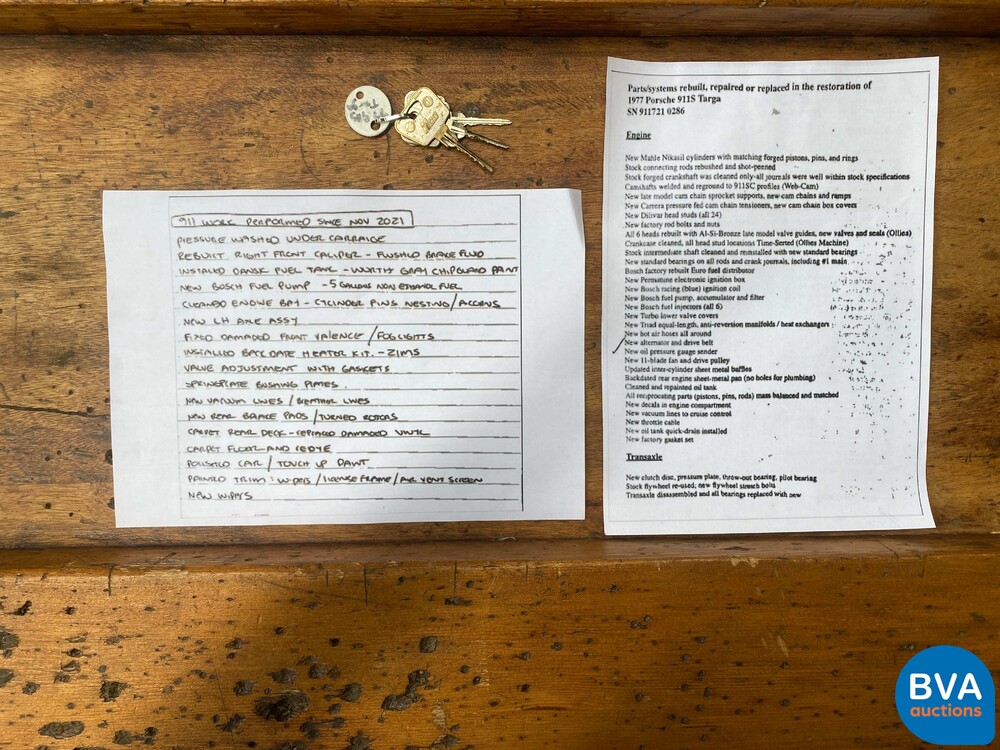 911 WORK PERFORMED SINCE NOV 2021
PRESSURE WASHED UNDER CARRAIGE
REBUILT RIGHT FRONT CALIPER - FLUSHED BRAKE FLUID
INSTALLED DANSK FUEL TANK - WURTH GRAY CHIPGUARD PAINT
NEW BOSCH FUEL PUMP - 5 GALLONS NON ETHANOL FUEL
CLEANED ENGINE BAY - CYLINDER FINS NESTING/ACORNS
NEW LH AXLE ASSY
FIXED DAMAGED FRONT VALENCE/FOGLIGHTS
INSTALLED BACKDATE HEATER KIT. - ZIMS
VALVE ADJUSTMENT WITH GASKETS
SPRINGPLATE BUSHING PLATES
NEW VACUUM LINES / BREATHER LINES
NEW REAR BRAKE PADS / TURNED ROTORS
CARPET REAR DECK - REPLACED DAMAGED VINYL
CARPET FLOOR AND REDYE
POLISHED CAR / TOUCH UP PAINT
PAINTED TRIM: WIPERS / LICENSE FRAME / AIR VENT SCREEN
NEW WIPERS
Parts/systems rebuilt, repaired or replaced in the restoration of
1977 Porsche 911S Targa
SN 911721 0286
Engine
New Mahle Nikasil cylinders with matching forged pistons, pins, and rings
Stock connecting rods rebushed and shot-peened
Stock forged crankshaft was cleaned only-all journals were well within stock specifications
Camshafts welded and reground to 911SC profiles (Web-Cam)
New late model cam chain sprocket supports, new cam chains and ramps
New Carrera pressure fed cam chain tensioners, new cam chain box covers
New Dilivar head studs (all 24)
New factory rod bolts and nuts
All 6 heads rebuilt with Al-Si-Bronze late model valve guides, new valves and seals (Ollies)
Crankcase cleaned, all head stud locations Time-Serted (Ollies Machine)
Stock intermediate shaft cleaned and reinstalled with new standard bearings
New standard bearings on all rods and crank journals, including #1 main
Bosch factory rebuilt Euro fuel distributor
New Permatune electronic ignition box
New Bosch racing (blue) ignition coil
New Bosch fuel pump, accumulator and filter
New Bosch fuel injectors (all 6)
New Turbo lower valve covers
New Triad equal-length, anti-reversion manifolds / heat exchangers
New hot air hoses all around
New alternator and drive belt
New oil pressure gauge sender
New 11-blade fan and drive pulley
Updated inter-cylinder sheet metal baffles
Backdated rear engine sheet-metal pan (no holes for plumbing)
Cleaned and repainted oil tank
All reciprocating parts (pistons, pins, rods) mass balanced and matched
New decals in engine compartment
New vacuum lines to cruise control
New throttle cable
New oil tank quick-drain installed
New factory gasket set
Transaxle
New clutch disc, pressure plate, throw-out bearing, pilot bearing
Stock flywheel re-used; new flywheel stretch bolts
Transaxle disassembled and all bearings replaced with new
BVA
auctions